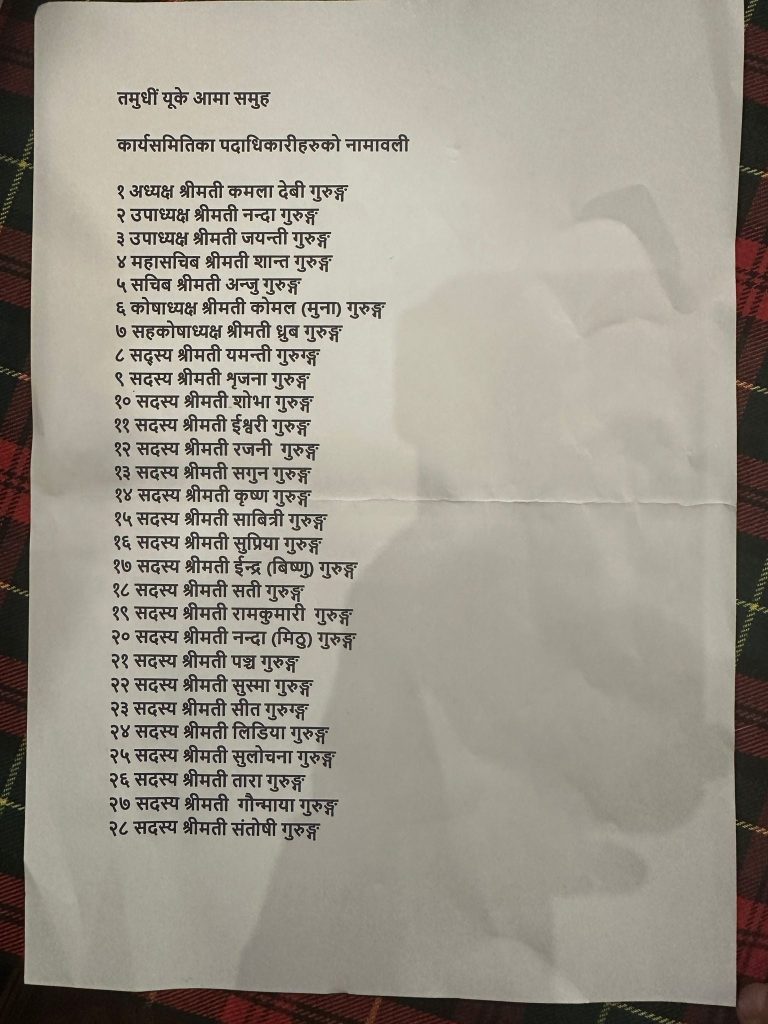 तमुधीं यूके आमा समुह
कार्यसमितिका पदाधिकारीहरुको नामावली
१ अध्यक्ष श्रीमती कमला देबी गुरुङ्ग
२ उपाध्यक्ष श्रीमती नन्दा गुरुङ्ग
३ उपाध्यक्ष श्रीमती जयन्ती गुरुङ्ग
४ महासचिब श्रीमती शान्त गुरुङ्ग
५ सचिब श्रीमती अन्जु गुरुङ्ग
६ कोषाध्यक्ष श्रीमती कोमल (मुना) गुरुङ्ग
७ सहकोषाध्यक्ष श्रीमती ध्रुब गुरुङ्ग
८ सद्स्य श्रीमती यमन्ती गुरुग्ङ्ग
९ सदस्य श्रीमती शृजना गुरुङ्ग
१० सदस्य श्रीमती शोभा गुरुङ्ग
११ सदस्य श्रीमती ईश्वरी गुरुङ्ग
१२ सदस्य श्रीमती रजनी गुरुङ्ग
१३ सदस्य श्रीमती सगुन गुरुङ्ग
१४ सदस्य श्रीमती कृष्ण गुरुङ्ग
१५ सदस्य श्रीमती साबित्री गुरुङ्ग
१६ सदस्य श्रीमती सुप्रिया गुरुङ्ग
१७ सदस्य श्रीमती ईन्द्र (बिष्णु) गुरुङ्ग
१८ सदस्य श्रीमती सती गुरुङ्ग
१९ सदस्य श्रीमती रामकुमारी गुरुङ्ग
२० सदस्य श्रीमती नन्दा (मिठु) गुरुङ्ग
२१ सदस्य श्रीमती पञ्च गुरुङ्ग
२२ सदस्य श्रीमती सुस्मा गुरुङ्ग
२३ सदस्य श्रीमती सीत गुरुग्ङ्ग
२४ सदस्य श्रीमती लिडिया गुरुङ्ग
२५ सदस्य श्रीमती सुलोचना गुरुङ्ग
२६ सदस्य श्रीमती तारा गुरुङ्ग
२७ सदस्य श्रीमती गौन्माया गुरुङ्ग
२८ सदस्य श्रीमती संतोषी गुरुङ्ग